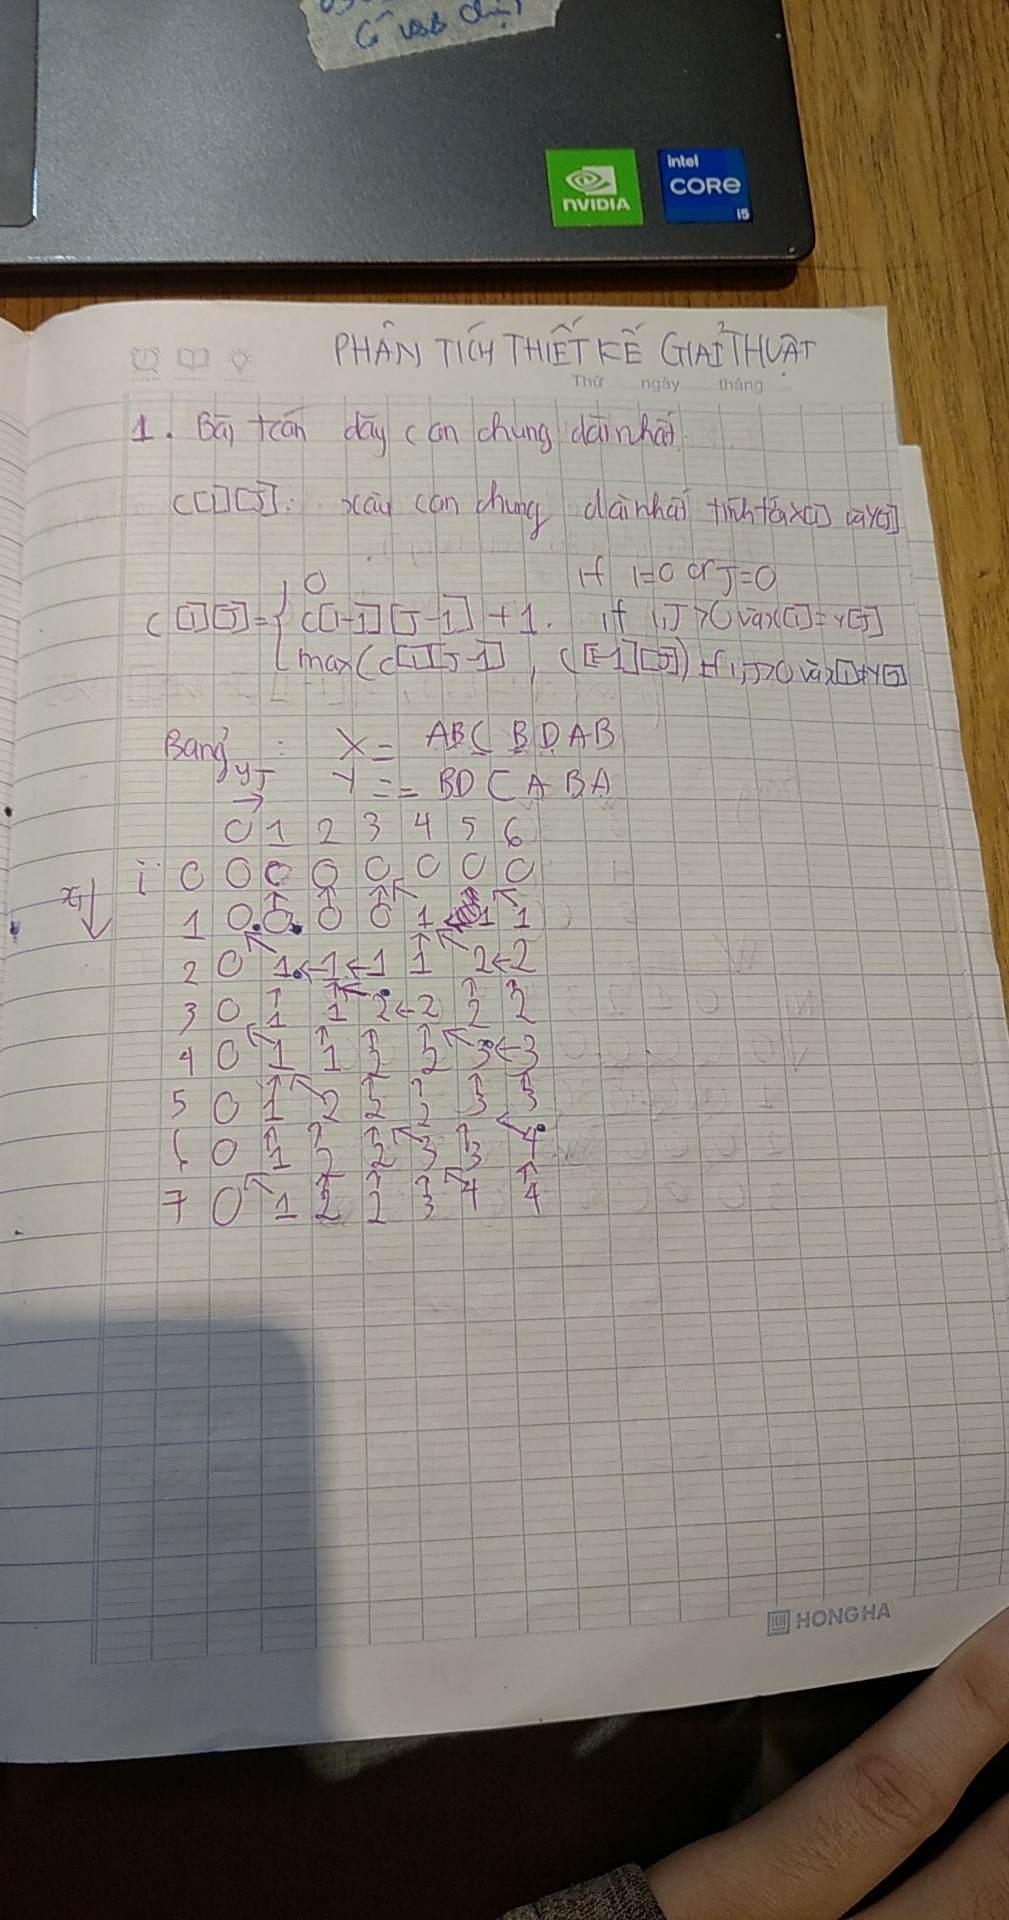 Có
NVIDIA
intel
CORE
i5
PHÂN TÍCH THIẾT KẾ GIẢI THUẬT
Thứ ngày tháng
1. Bài toán dãy con chung dài nhất
c[i][j]: xâu con chung dài nhất tính từ x[i] và y[j]
0 if i=0 or j=0
c[i][j] = { c[i-1][j-1] + 1. if i,j>0 và x[i]=y[j]
max(c[i][j-1], c[i-1][j]) if i,j>0 và x[i]≠y[j]
Bảng: X = ABCBDAB
yj → Y = = BDCABA
0 1 2 3 4 5 6
i 0 0 0 0 0 0 0 0
xi ↓ 1 0 ↑0 ↑0 ↑0 ↖1 ←1 ↖1
2 0 ↖1 ←1 ←1 ↑1 ↖2 ←2
3 0 ↑1 ↑1 ↖2 ←2 ↑2 ↑2
4 0 ↖1 ↑1 ↑2 ↑2 ↖3 ←3
5 0 ↑1 ↖2 ↑2 ↑2 ↑3 ↑3
6 0 ↑1 ↑2 ↑2 ↖3 ↑3 ↖4
7 0 ↖1 ↑2 ↑2 ↑3 ↖4 ↑4
HONG HA